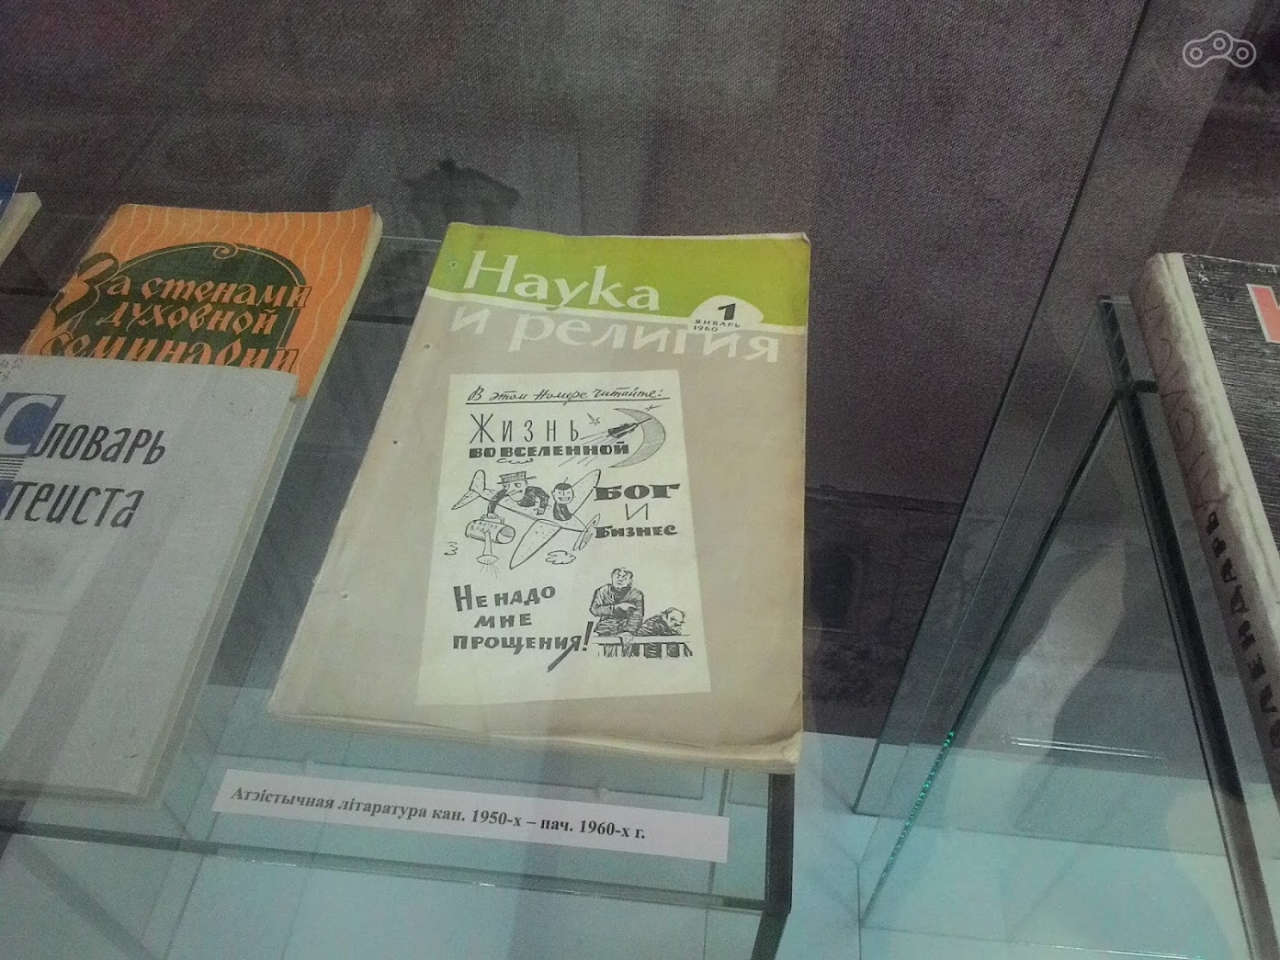 За стенами
духовной
семинарии
Словарь
атеиста
Наука
и религия
1
ЯНВАРЬ
1960
В этом номере читайте:
ЖИЗНЬ
ВО ВСЕЛЕННОЙ
БОГ
И
БИЗНЕС
НЕ НАДО
МНЕ
ПРОЩЕНИЯ!
Атэістычная літаратура кан. 1950-х – пач. 1960-х г.